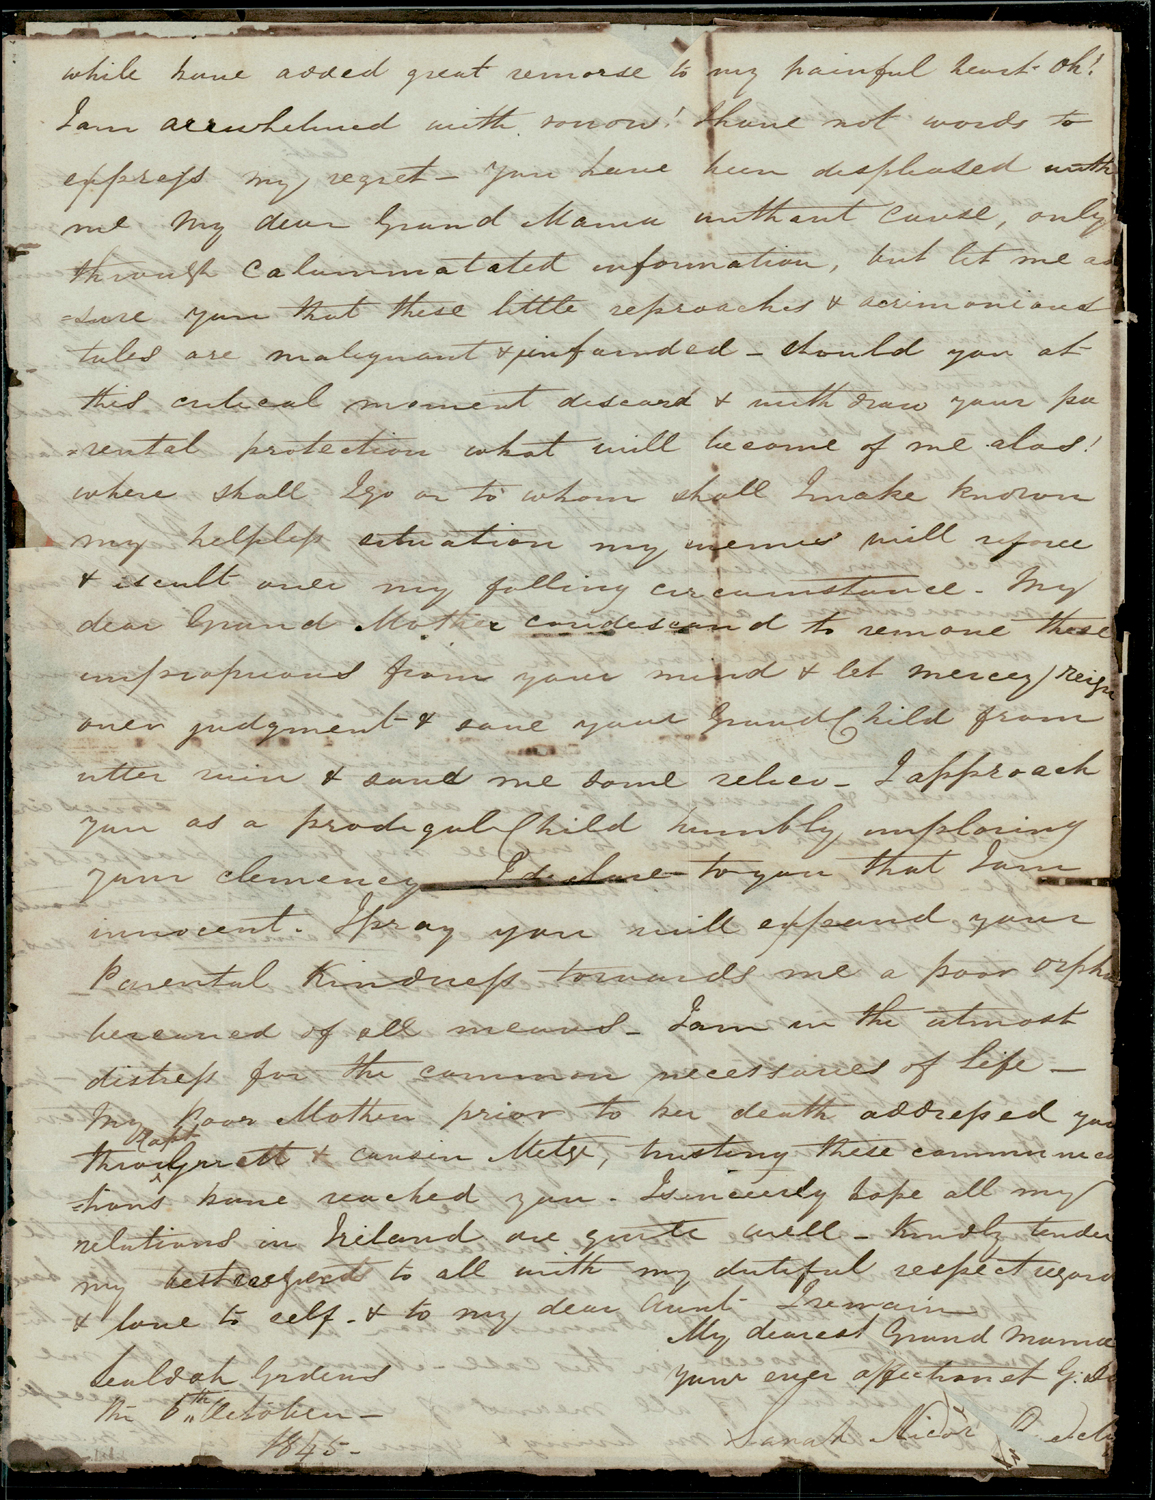 while have added great remorse to my painful heart - Oh!
I am arrwhelmed with sorrow! I have not words to
express my regret - You have been displeased with
me My dear Grand Mama without cause, only
through Calummatated information, but let me as
=sure you that these little reproaches & acrimonious
tales are malignant & unfounded - should you at
this critical moment discard & withdraw your pa
=rental protection what will become of me alas!
where shall I go or to whom shall I make known
my helpless situation my enemies will rejoice
& insult over my falling circumstance - My
dear Grand Mother condescand to remove these
impropious from your mind & let mercey reign
over judgment & save your Grand Child from
utter ruin & sand me some reliev - I approach
you as a prodigal Child humbly imploring
your clemency I declare to you that I am
innocent. I pray you will expand your
Parental Kindness towards me a poor orpha
bereaved of all means - I am in the utmost
distress for the common necessaries of life -
My Poor Mother prior to her death addressed you
thro Capt Garrett & cousin Metge, trusting these communica
=tions have reached you - I sincerely hope all my
relations in Ireland are quite well - kindly tender
my best regard to all with my dutiful respect regard
& love to self - & to my dear Aunt - I remain
My dearest Grand Mama
Your ever affectionat G: D
Sealdah Gardens
the 6th October -
1845 -
Sarah